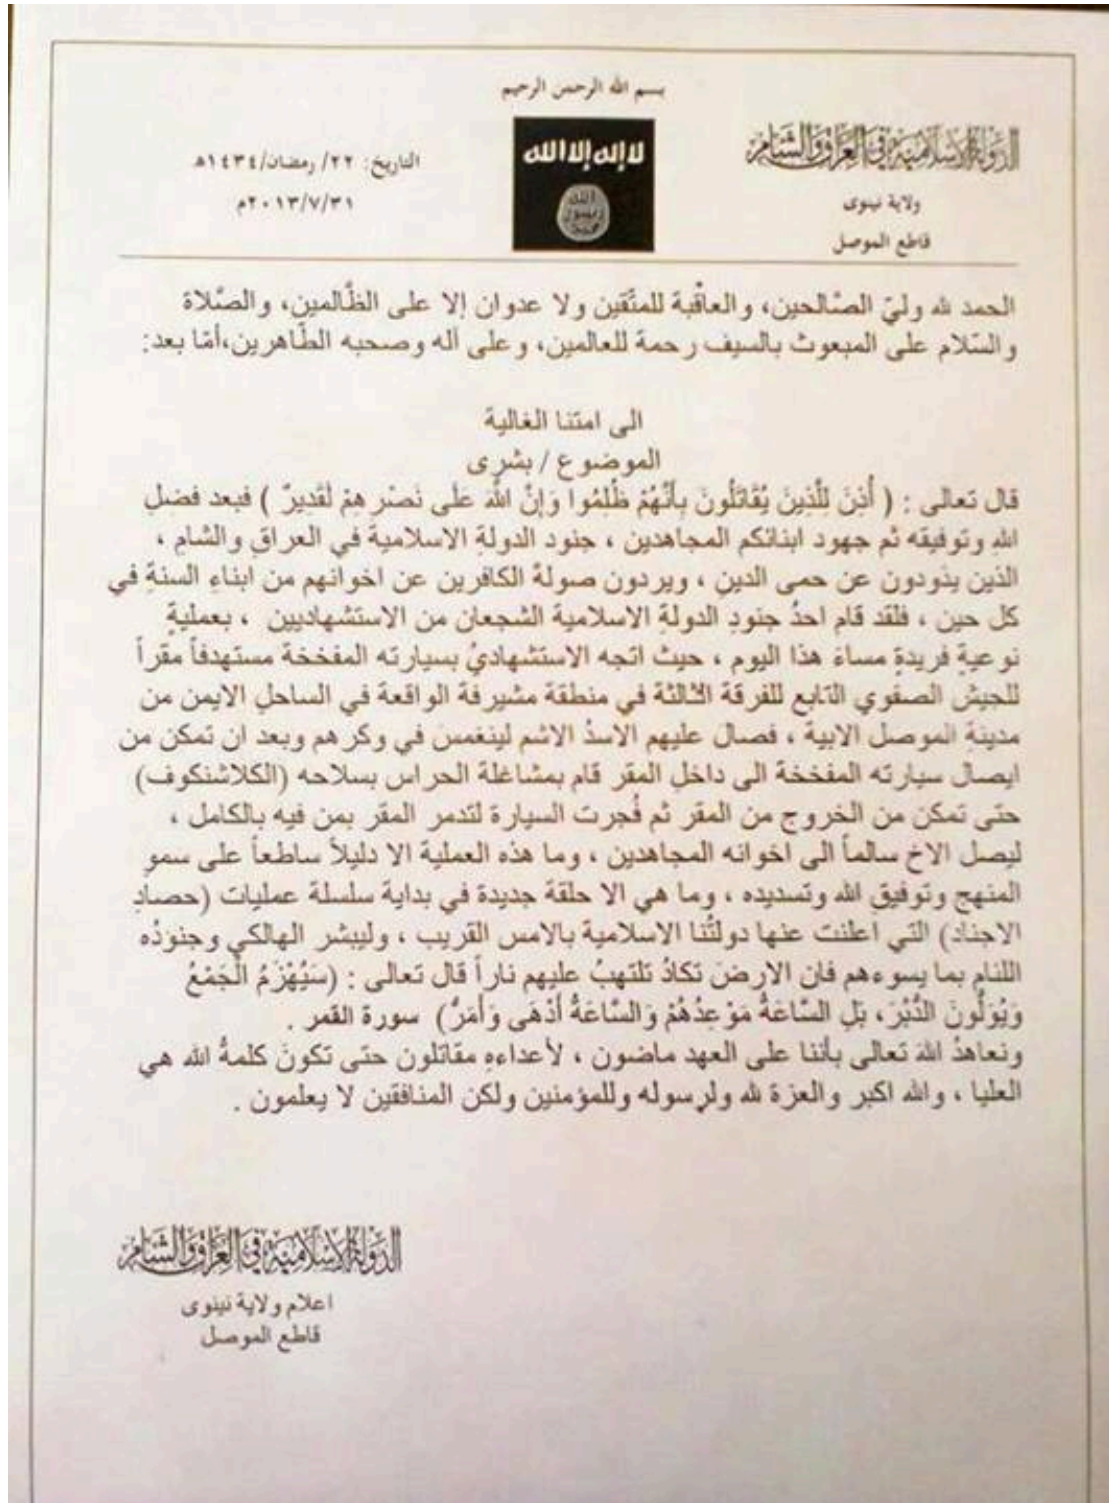 بسم الله الرحمن الرحيم
الدولة الإسلامية في العراق والشام
ولاية نينوى
قاطع الموصل
لا إله إلا الله
الله
رسول
محمد
التاريخ: ٢٢/ رمضان/١٤٣٤هـ
٢٠١٣/٧/٣١م
الحمد لله وليّ الصّالحين، والعاقبة للمتّقين ولا عدوان إلا على الظّالمين، والصّلاة
والسّلام على المبعوث بالسيف رحمة للعالمين، وعلى آله وصحبه الطّاهرين،أمّا بعد:
الى امتنا الغالية
الموضوع / بشرى
قال تعالى : ( أُذِنَ لِلَّذِينَ يُقَاتَلُونَ بِأَنَّهُمْ ظُلِمُوا وَإِنَّ اللَّهَ عَلَى نَصْرِهِمْ لَقَدِيرٌ ) فبعد فضلِ
اللهِ وتوفيقه ثم جهود ابنائكم المجاهدين ، جنود الدولةِ الاسلامية في العراقِ والشامِ ،
الذين يذودون عن حمى الدينِ ، ويردون صولةَ الكافرين عن اخوانهم من ابناءِ السنةِ في
كل حين ، فلقد قام احدُ جنودِ الدولةِ الاسلامية الشجعان من الاستشهاديين ، بعمليةٍ
نوعيةٍ فريدةٍ مساءَ هذا اليوم ، حيث اتجه الاستشهاديُ بسيارته المفخخة مستهدفاً مقراً
للجيش الصفوي التابع للفرقة الثالثة في منطقة مشيرفة الواقعة في الساحلِ الايمن من
مدينة الموصل الابية ، فصال عليهم الاسدُ الاشم لينغمس في وكرهم وبعد ان تمكن من
ايصال سيارته المفخخة الى داخلِ المقر قام بمشاغلة الحراس بسلاحه (الكلاشنكوف)
حتى تمكن من الخروج من المقر ثم فُجرت السيارة لتدمر المقر بمن فيه بالكامل ،
ليصل الاخ سالماً الى اخوانه المجاهدين ، وما هذه العملية الا دليلاً ساطعاً على سموِ
المنهج وتوفيقِ الله وتسديده ، وما هي الا حلقة جديدة في بداية سلسلة عمليات (حصادِ
الاجناد) التي اعلنت عنها دولتُنا الاسلامية بالامس القريب ، وليبشر الهالكي وجنودُه
اللئام بما يسوءهم فان الارضَ تكادُ تلتهبُ عليهم ناراً قال تعالى : (سَيُهْزَمُ الْجَمْعُ
وَيُوَلُّونَ الدُّبُرَ، بَلِ السَّاعَةُ مَوْعِدُهُمْ وَالسَّاعَةُ أَدْهَى وَأَمَرُّ) سورة القمر .
ونعاهدُ اللهَ تعالى بأننا على العهد ماضون ، لأعداءهِ مقاتلون حتى تكونَ كلمةُ الله هي
العليا ، والله اكبر والعزة لله ولرسوله وللمؤمنين ولكن المنافقين لا يعلمون .
الدولة الإسلامية في العراق والشام
اعلام ولاية نينوى
قاطع الموصل